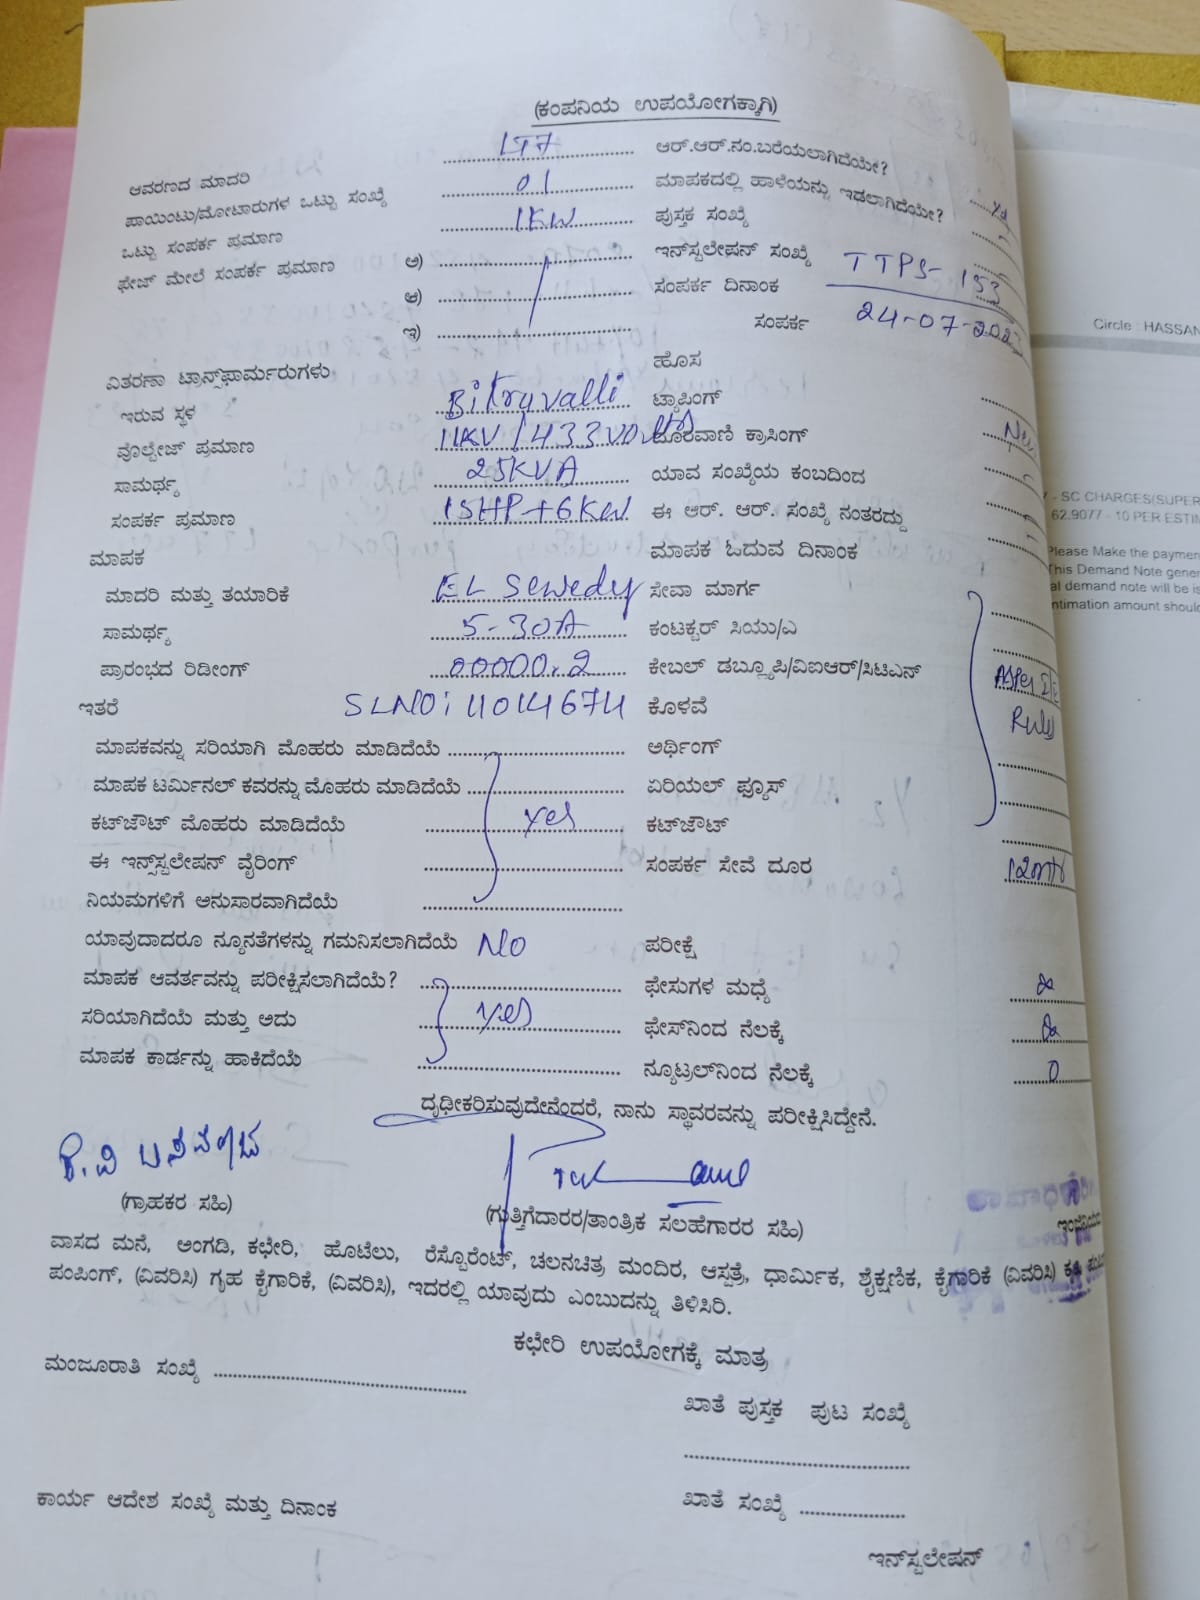 (ಕಂಪನಿಯ ಉಪಯೋಗಕ್ಕಾಗಿ)
ಆವರಣದ ಮಾದರಿ LT7 ಆರ್.ಆರ್.ನಂ.ಬರೆಯಲಾಗಿದೆಯೇ?
ಪಾಯಿಂಟು/ಮೋಟಾರುಗಳ ಒಟ್ಟು ಸಂಖ್ಯೆ 01 ಮಾಪಕದಲ್ಲಿ ಹಾಳೆಯನ್ನು ಇಡಲಾಗಿದೆಯೇ?
ಒಟ್ಟು ಸಂಪರ್ಕ ಪ್ರಮಾಣ 1KW ಪುಸ್ತಕ ಸಂಖ್ಯೆ
ಫೇಜ್ ಮೇಲೆ ಸಂಪರ್ಕ ಪ್ರಮಾಣ ಅ) ಇನ್‌ಸ್ಟಲೇಷನ್ ಸಂಖ್ಯೆ TTPS-153
ಆ) ಸಂಪರ್ಕ ದಿನಾಂಕ 24-07-2023
ಇ) ಸಂಪರ್ಕ
ವಿತರಣಾ ಟ್ರಾನ್ಸ್‌ಫಾರ್ಮರುಗಳು ಹೊಸ
ಇರುವ ಸ್ಥಳ Bikruvalli ಟ್ಯಾಪಿಂಗ್
ವೊಲ್ಟೇಜ್ ಪ್ರಮಾಣ 11KV/433Volts ದೂರವಾಣಿ ಕ್ರಾಸಿಂಗ್ New
ಸಾಮರ್ಥ್ಯ 25KVA ಯಾವ ಸಂಖ್ಯೆಯ ಕಂಬದಿಂದ
ಸಂಪರ್ಕ ಪ್ರಮಾಣ 15HP+6KW ಈ ಆರ್. ಆರ್. ಸಂಖ್ಯೆ ನಂತರದ್ದು
ಮಾಪಕ ಮಾಪಕ ಓದುವ ದಿನಾಂಕ
ಮಾದರಿ ಮತ್ತು ತಯಾರಿಕೆ EL Sewedy ಸೇವಾ ಮಾರ್ಗ
ಸಾಮರ್ಥ್ಯ 5-30A ಕಂಟಕ್ಟರ್ ಸಿಯು/ಎ
ಪ್ರಾರಂಭದ ರಿಡೀಂಗ್ 00000.2 ಕೇಬಲ್ ಡಬ್ಲ್ಯೂಪಿ/ವಿಐಆರ್/ಸಿಟಿಎನ್ Asper IE
ಇತರೆ SLNO: 11014674 ಕೊಳವೆ Rules
ಮಾಪಕವನ್ನು ಸರಿಯಾಗಿ ಮೊಹರು ಮಾಡಿದೆಯೆ ಅರ್ಥಿಂಗ್
ಮಾಪಕ ಟರ್ಮಿನಲ್ ಕವರನ್ನು ಮೊಹರು ಮಾಡಿದೆಯೆ ಏರಿಯಲ್ ಫ್ಯೂಸ್
ಕಟ್‌ಔಟ್ ಮೊಹರು ಮಾಡಿದೆಯೆ yes ಕಟ್‌ಔಟ್
ಈ ಇನ್ಸ್‌ಸ್ಟಲೇಷನ್ ವೈರಿಂಗ್ ಸಂಪರ್ಕ ಸೇವೆ ದೂರ 12mtr
ನಿಯಮಗಳಿಗೆ ಅನುಸಾರವಾಗಿದೆಯೆ
ಯಾವುದಾದರೂ ನ್ಯೂನತೆಗಳನ್ನು ಗಮನಿಸಲಾಗಿದೆಯೆ NO ಪರೀಕ್ಷೆ
ಮಾಪಕ ಆವರ್ತವನ್ನು ಪರೀಕ್ಷಿಸಲಾಗಿದೆಯೆ? ಫೇಸುಗಳ ಮಧ್ಯೆ ∞
ಸರಿಯಾಗಿದೆಯೆ ಮತ್ತು ಅದು yes ಫೇಸ್‌ನಿಂದ ನೆಲಕ್ಕೆ ∞
ಮಾಪಕ ಕಾರ್ಡನ್ನು ಹಾಕಿದೆಯೆ ನ್ಯೂಟ್ರಲ್‌ನಿಂದ ನೆಲಕ್ಕೆ 0
ದೃಢೀಕರಿಸುವುದೇನೆಂದರೆ, ನಾನು ಸ್ಥಾವರವನ್ನು ಪರೀಕ್ಷಿಸಿದ್ದೇನೆ.
(ಗ್ರಾಹಕರ ಸಹಿ) (ಗುತ್ತಿಗೆದಾರರ/ತಾಂತ್ರಿಕ ಸಲಹೆಗಾರರ ಸಹಿ)
ವಾಸದ ಮನೆ, ಅಂಗಡಿ, ಕಛೇರಿ, ಹೊಟೆಲು, ರೆಸ್ಟೊರೆಂಟ್, ಚಲನಚಿತ್ರ ಮಂದಿರ, ಆಸ್ಪತ್ರೆ, ಧಾರ್ಮಿಕ, ಶೈಕ್ಷಣಿಕ, ಕೈಗಾರಿಕೆ (ವಿವರಿಸಿ)
ಪಂಪಿಂಗ್, (ವಿವರಿಸಿ) ಗೃಹ ಕೈಗಾರಿಕೆ, (ವಿವರಿಸಿ), ಇದರಲ್ಲಿ ಯಾವುದು ಎಂಬುದನ್ನು ತಿಳಿಸಿರಿ.
ಕಛೇರಿ ಉಪಯೋಗಕ್ಕೆ ಮಾತ್ರ
ಮಂಜೂರಾತಿ ಸಂಖ್ಯೆ
ಖಾತೆ ಪುಸ್ತಕ ಪುಟ ಸಂಖ್ಯೆ
ಕಾರ್ಯ ಆದೇಶ ಸಂಖ್ಯೆ ಮತ್ತು ದಿನಾಂಕ ಖಾತೆ ಸಂಖ್ಯೆ
ಇನ್‌ಸ್ಟಲೇಷನ್
Circle : HASSAN
- SC CHARGES(SUPER
62.9077 - 10 PER ESTIM
Please Make the paymen
This Demand Note gener
al demand note will be is
ntimation amount should